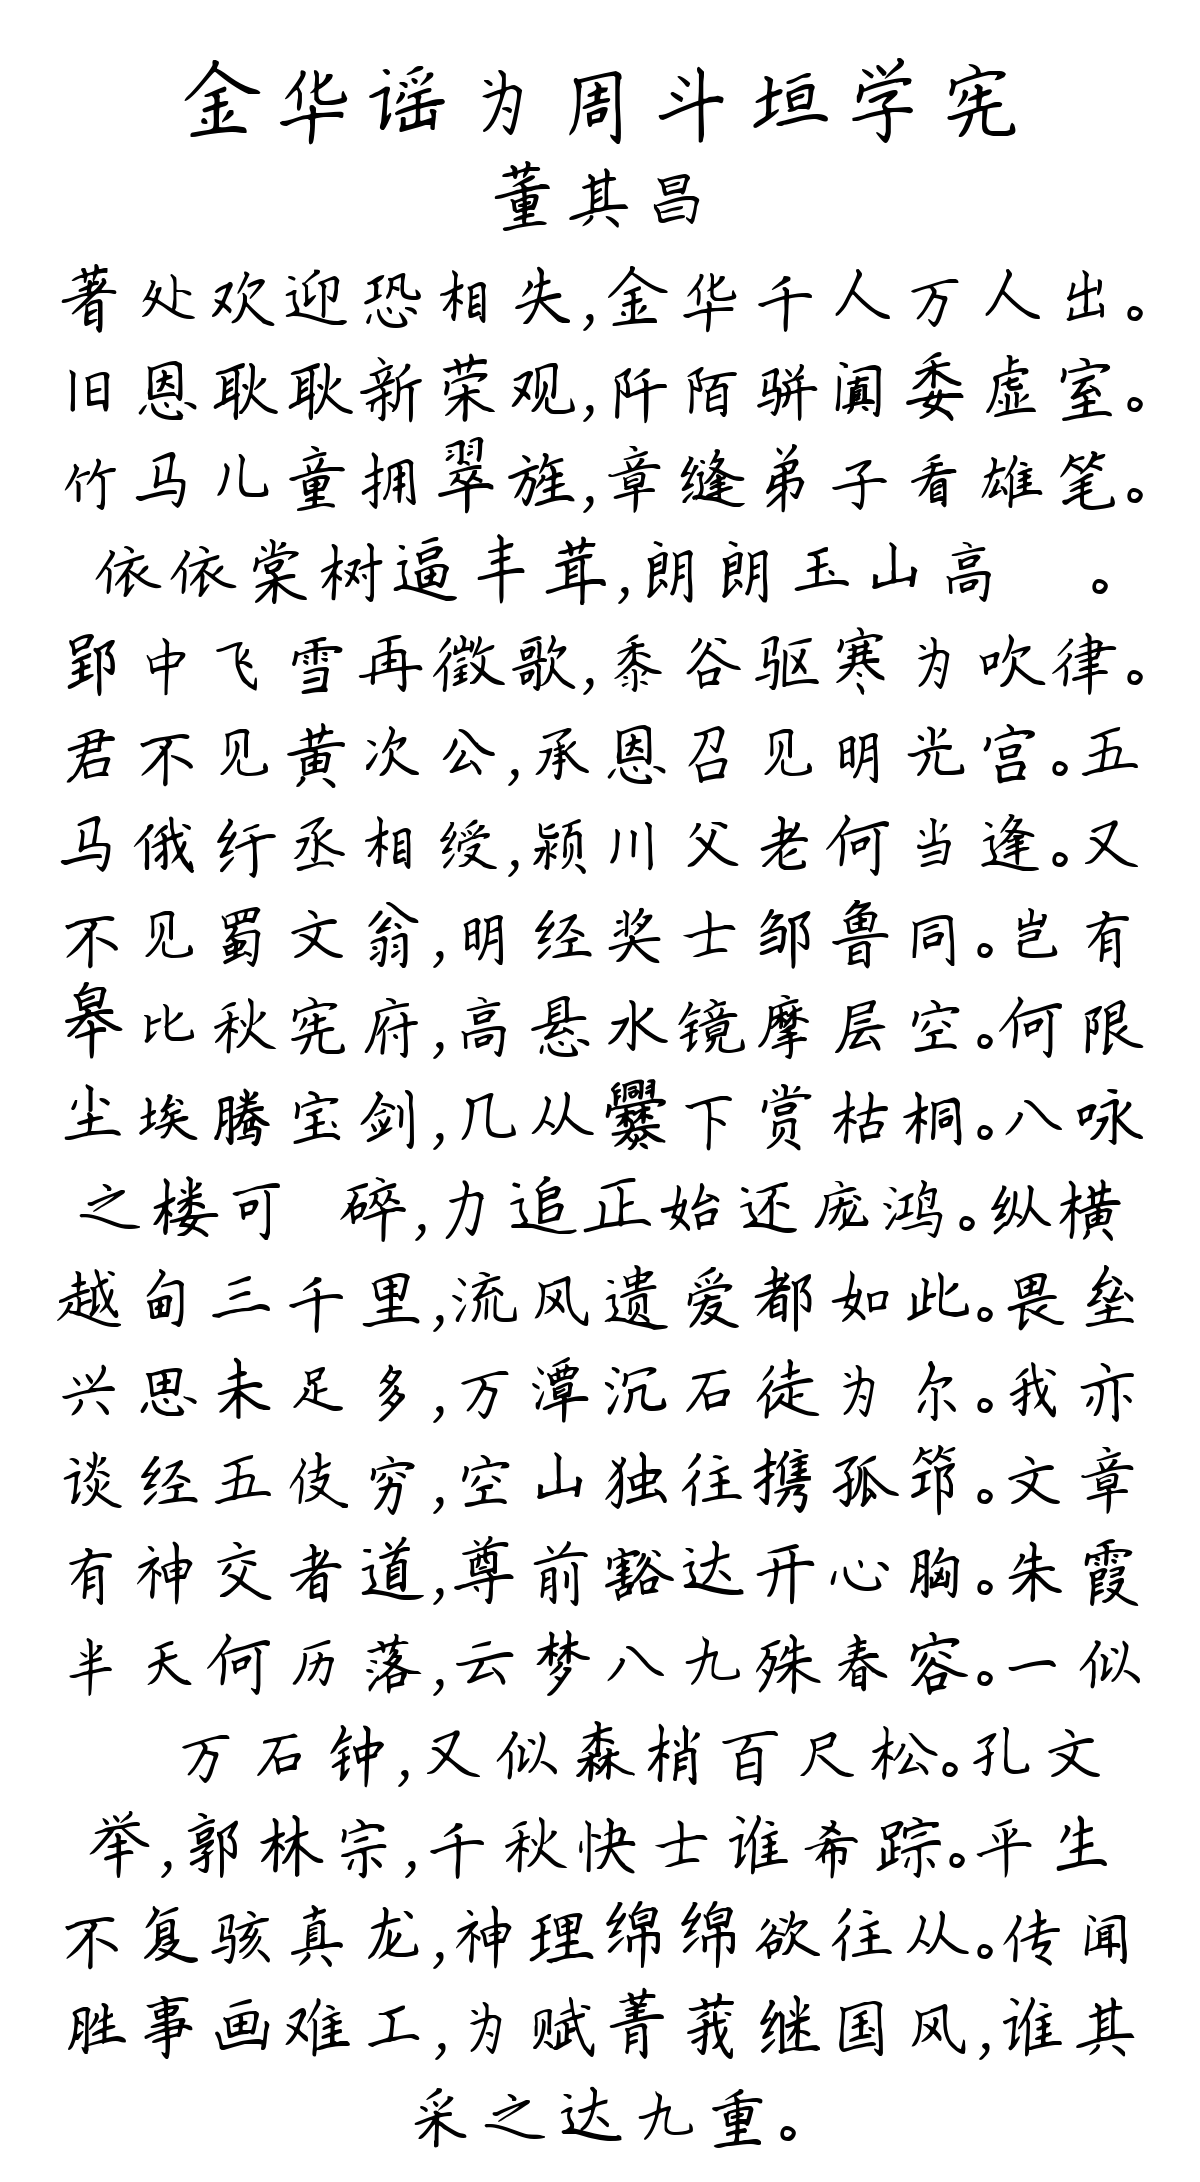 金华谣为周斗垣学宪
董其昌
著处欢迎恐相失,金华千人万人出。
旧恩耿耿新荣观,阡陌骈阗委虚室。
竹马儿童拥翠旌,章缝弟子看雄笔。
依依棠树逼丰茸,朗朗玉山高 。
郢中飞雪再徵歌,黍谷驱寒为吹律。
君不见黄次公,承恩召见明光宫。五
马俄纡丞相绶,颍川父老何当逢。又
不见蜀文翁,明经奖士邹鲁同。岂有
皋比秋宪府,高悬水镜摩层空。何限
尘埃腾宝剑,几从爨下赏枯桐。八咏
之楼可 碎,力追正始还庞鸿。纵横
越甸三千里,流风遗爱都如此。畏垒
兴思未足多,万潭沉石徒为尔。我亦
谈经五伎穷,空山独往携孤筇。文章
有神交者道,尊前豁达开心胸。朱霞
半天何历落,云梦八九殊春容。一似
万石钟,又似森梢百尺松。孔文
举,郭林宗,千秋快士谁希踪。平生
不复骇真龙,神理绵绵欲往从。传闻
胜事画难工,为赋菁莪继国风,谁其
采之达九重。